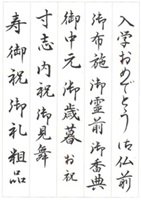 入学おめでとう 御仏前
御布施 御霊前 御香典
御中元 御歳暮 お祝
寸志 内祝 御見舞
寿 御祝 御礼 粗品